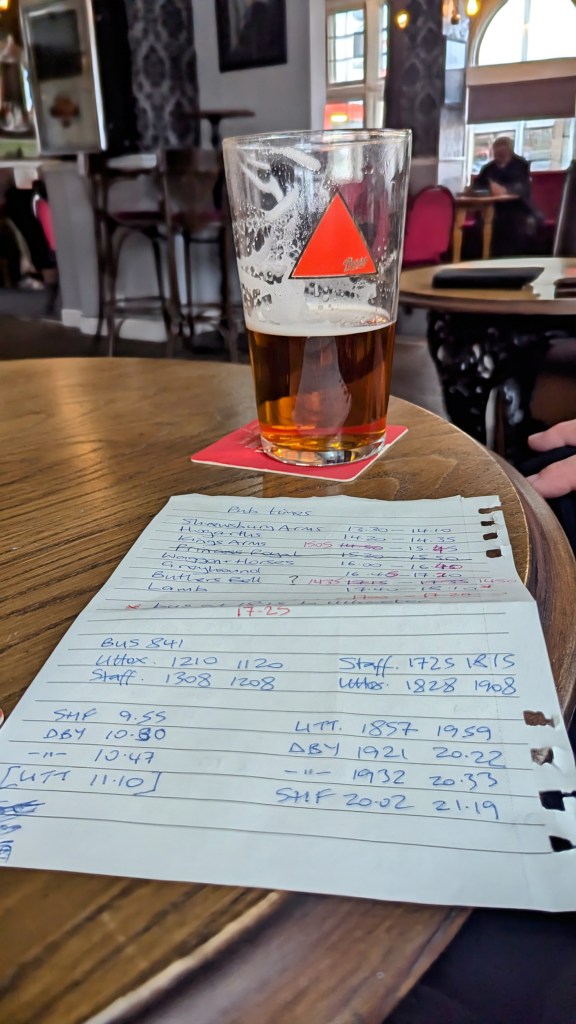 Bass
Pub times
Shrewsbury Arms 13.30 - 14.10
Hogarths 14.20 - 14.35
Kings Arms 1505 - 15 45
Princess Royal
Waggon + Horses 15.30 - 15.50
Greyhound 16.00 - 16 40
Butlers Bell ? 1435
Lamb
17.25
Bus 841
Uttox. 1210 1120
Staff. 1308 1208
Staff. 1725 1815
Uttox. 1828 1908
SHF 9.55
DBY 10.30
-"- 10.47
[UTT 11.10]
UTT. 1857 1959
DBY 1921 20.22
-"- 1932 20.33
SHF 20.02 21.19